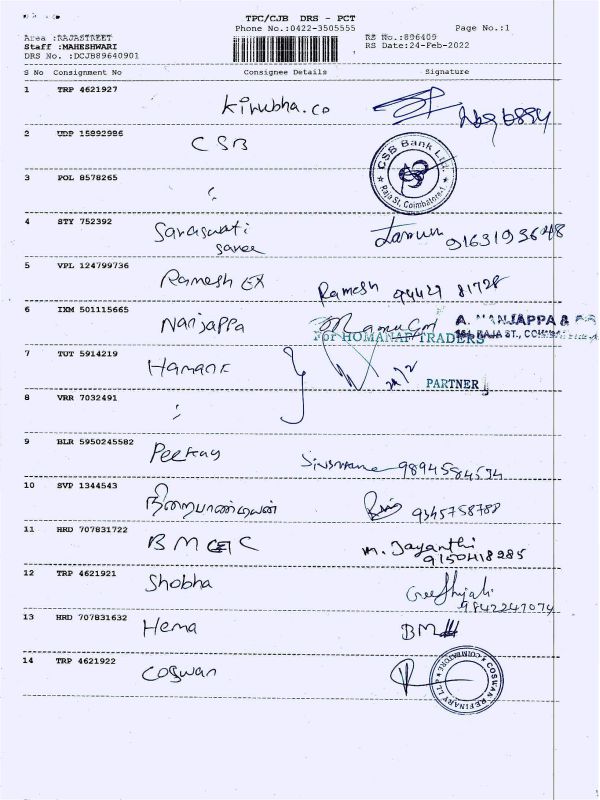 TPC/CJB DRS - PCT
Phone No.:0422-3505555
Page No.:1
Area :RAJASTREET
Staff :MAHESHWARI
DRS No. :DCJB89640901
RS No.:896409
RS Date:24-Feb-2022
S No Consignment No Consignee Details Signature
1 TRP 4621927 Kirubha.co
2 UDP 15892986 CSB
CSB Bank Ltd.
Raja St. Coimbatore-1
3 POL 8578265 "
4 STY 752392 Saraswati 9163193648
saree
5 VPL 124799736 Ramesh EX Ramesh 94427 81728
6 IXM 501115665 Nanjappa A. NANJAPPA &
RAJA ST.,
For HOMANAF TRADERS
7 TOT 5914219
PARTNER
8 VRR 7032491 "
9 BLR 5950245582 Peekay 9894584574
10 SVP 1344543 நிறைபாண்டியன் 9345758788
11 HRD 707831722 BMC M. Jayanthi
9150418285
12 TRP 4621921 Shobha
9842247074
13 HRD 707831632 Hema
14 TRP 4621922 Coswan
COSWAN REFINARY LLP
COIMBATORE